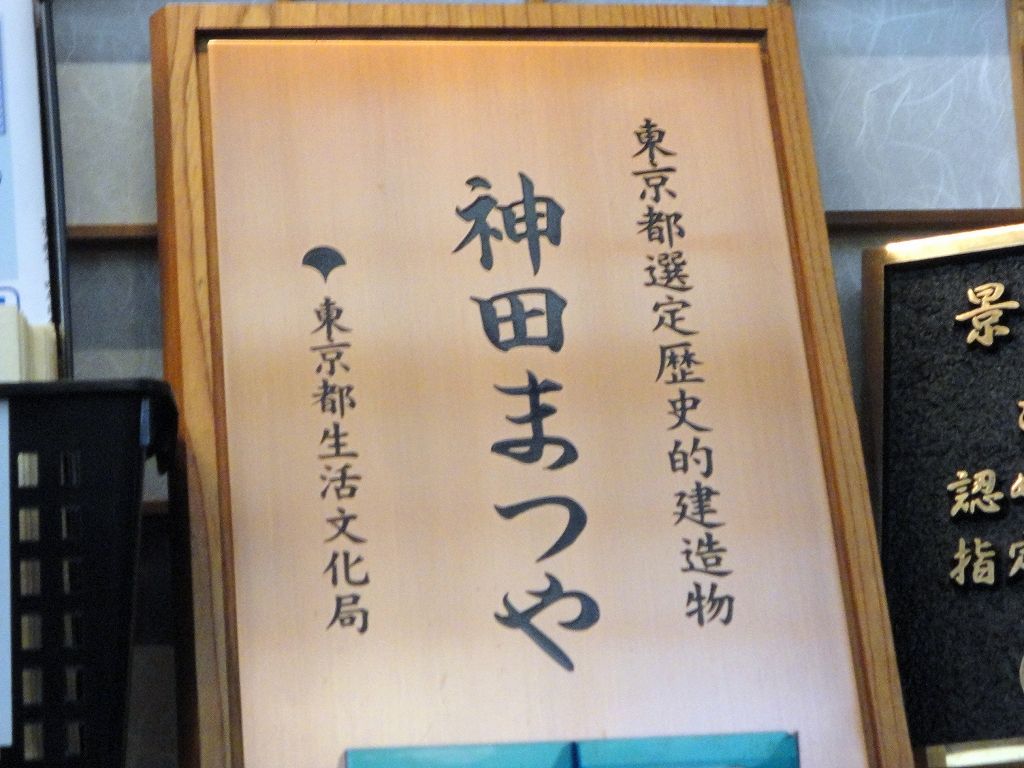 東京都選定歴史的建造物
神田まつや
東京都生活文化局
景
認
指定